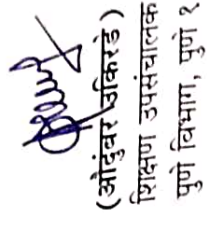 (औदुंबर उकिरडे)
शिक्षण उपसंचालक
पुणे विभाग, पुणे १